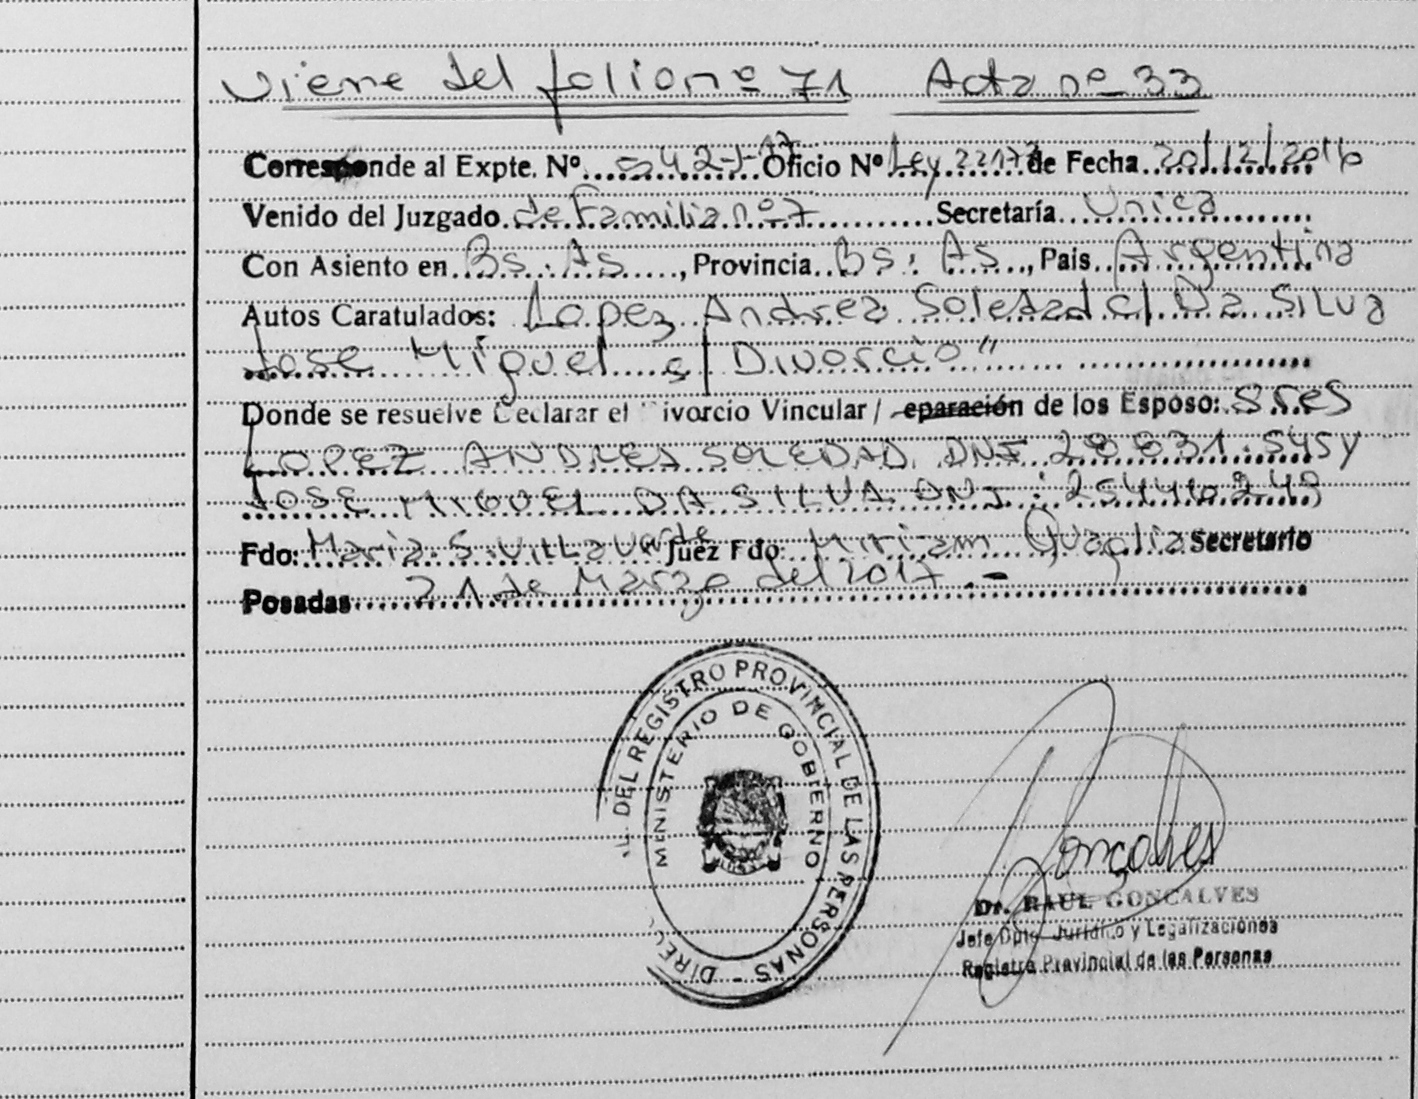 Viene del folio nº 71 Acta nº 33
Corresponde al Expte. Nº 542-J-17 Oficio Nº Ley 22172 de Fecha 20/12/2016
Venido del Juzgado de Familia nº 7 Secretaría Unica
Con Asiento en Bs. As, Provincia Bs. As, Pais Argentina
Autos Caratulados: Lopez Andrea Soledad c/ Da Silva
Jose Miguel s/ Divorcio"
Donde se resuelve Declarar el ivorcio Vincular / eparación de los Esposo: Sres
LOPEZ ANDREA SOLEDAD DNI 28.831.545 y
JOSE MIGUEL DA SILVA DNI:
Fdo: Maria S. Villaverde Juez Fdo: Miriam Quaglia Secretario
Posadas 21 de Marzo del 2017.-
DIREC L DEL REGISTRO PROVINCIAL DE LAS PERSONAS -
MINISTERIO DE GOBIERNO
Gonçalves
Dr. RAUL GONCALVES
Jefe Dpto. Jurídico y Legalizaciones
Registro Provincial de las Personas